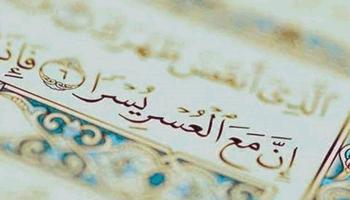 الَّذِي أَنقَضَ ظَهْرَكَ
إِنَّ مَعَ الْعُسْرِ يُسْرًا ٦ فَإِذَا